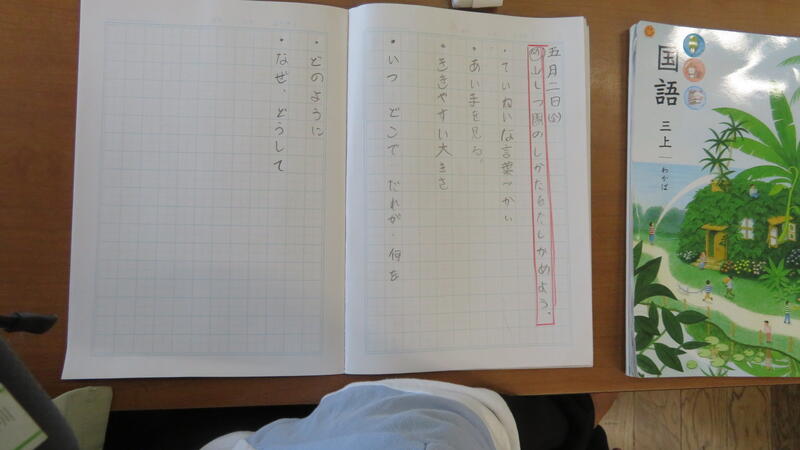 五月二日㊎
め 山しつ問のしかたをたしかめよう。
・ていねいな言葉づかい
・あい手を見る。
・ききやすい大きさ
・いつ どこで だれが 何を
・どのように
・なぜ、どうして
国語 三上
わかば